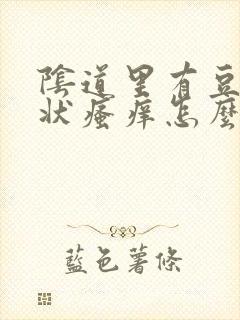 陰道里有豆
狀瘙痒怎麼
藍色薯條